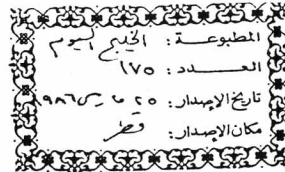 المطبوعــة: الخليج اليوم
العــــدد: ١٧٥
تاريخ الإصدار: ٢٥ مايس ١٩٨٦
مكان الإصدار: قطر